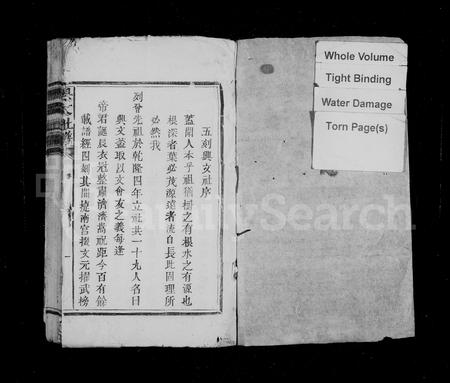 五刻興文社序
蓋聞人本乎祖猶樹之有根水之有源也
根深者葉必茂源遠者流自長此固理所
必然我
列晉先祖於乾隆四年立社共一十九人名曰
興文蓋取以文會友之義每逢
帝君誕辰衣冠整肅濟濟嵩祝距今百有餘
載譜經四刻其間捷南宮掇文元擢武榜
Whole Volume
Tight Binding
Water Damage
Torn Page(s)
FamilySearch